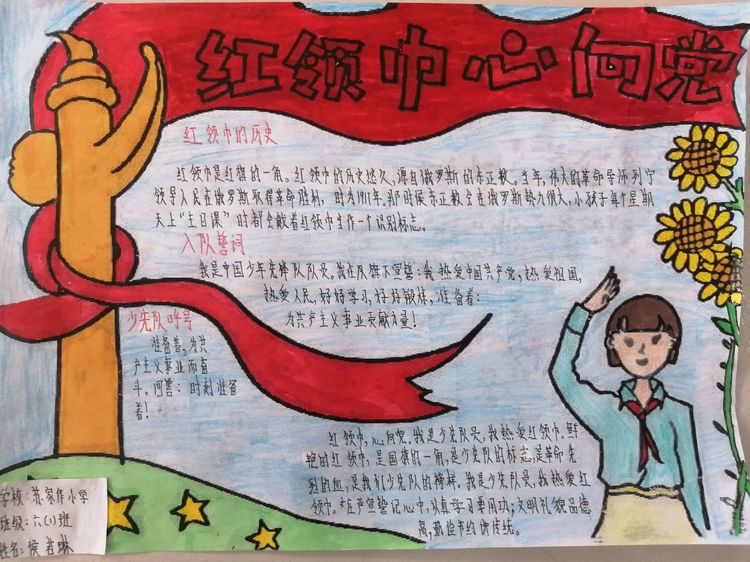 红领巾心向党
红领巾的历史
红领巾是红旗的一角。红领巾的历史悠久,源自俄罗斯的东正教。当年,伟大的革命导师列宁
领导人民在俄罗斯取得革命胜利,时为1917年,那时候东正教会在俄罗斯势力很大,小孩子每个星期
天上“主日课”时都会戴着红领巾当作一个识别标志。
入队誓词
我是中国少年先锋队队员。我在队旗下宣誓:我热爱中国共产党,热爱祖国,
热爱人民,好好学习,好好锻炼,准备着:
为共产主义事业贡献力量!
少先队呼号
准备着,为共
产主义事业而奋
斗。回答:时刻准备
着!
红领巾,心向党。我是少先队员,我热爱红领巾。鲜
艳的红领巾,是国旗的一角,是少先队的标志,是革命先
烈的血,是我们少先队的榜样。我是少先队员,我热爱红
领巾。庄严宣誓记心中,认真学习要用功;文明礼貌品德
高,勤俭节约讲传统。
学校:苏家作小学
班级:六(1)班
姓名:侯若琳